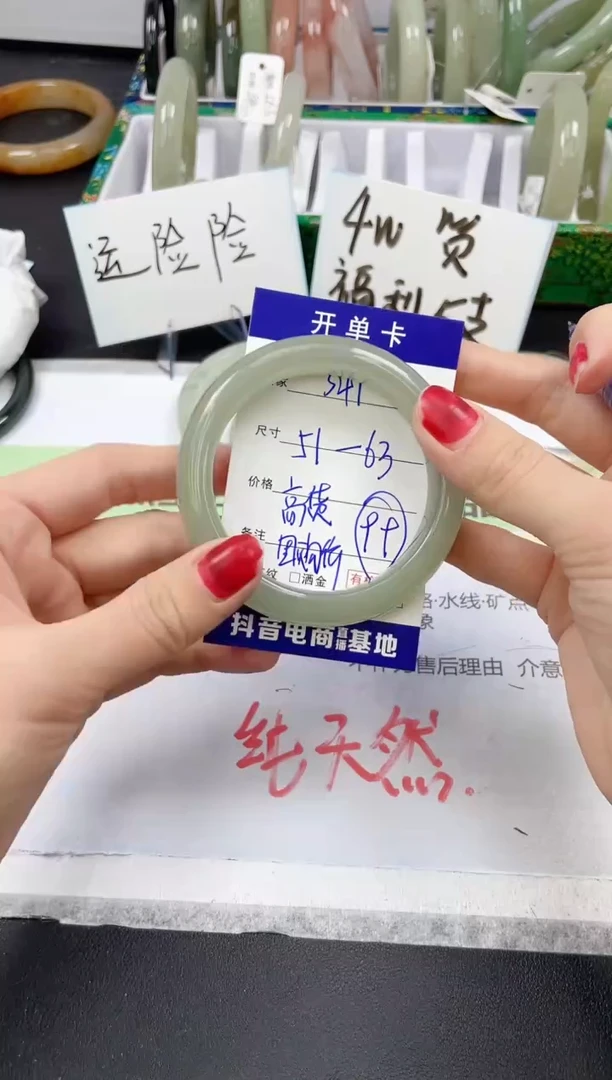 运险险
4w 货
福利
开单卡
541
尺寸 51-63
价格 高货
备注 团购价 99
纹 □洒金
抖音电商直播基地
·水线·矿点
象
售后理由 介意
纯天然